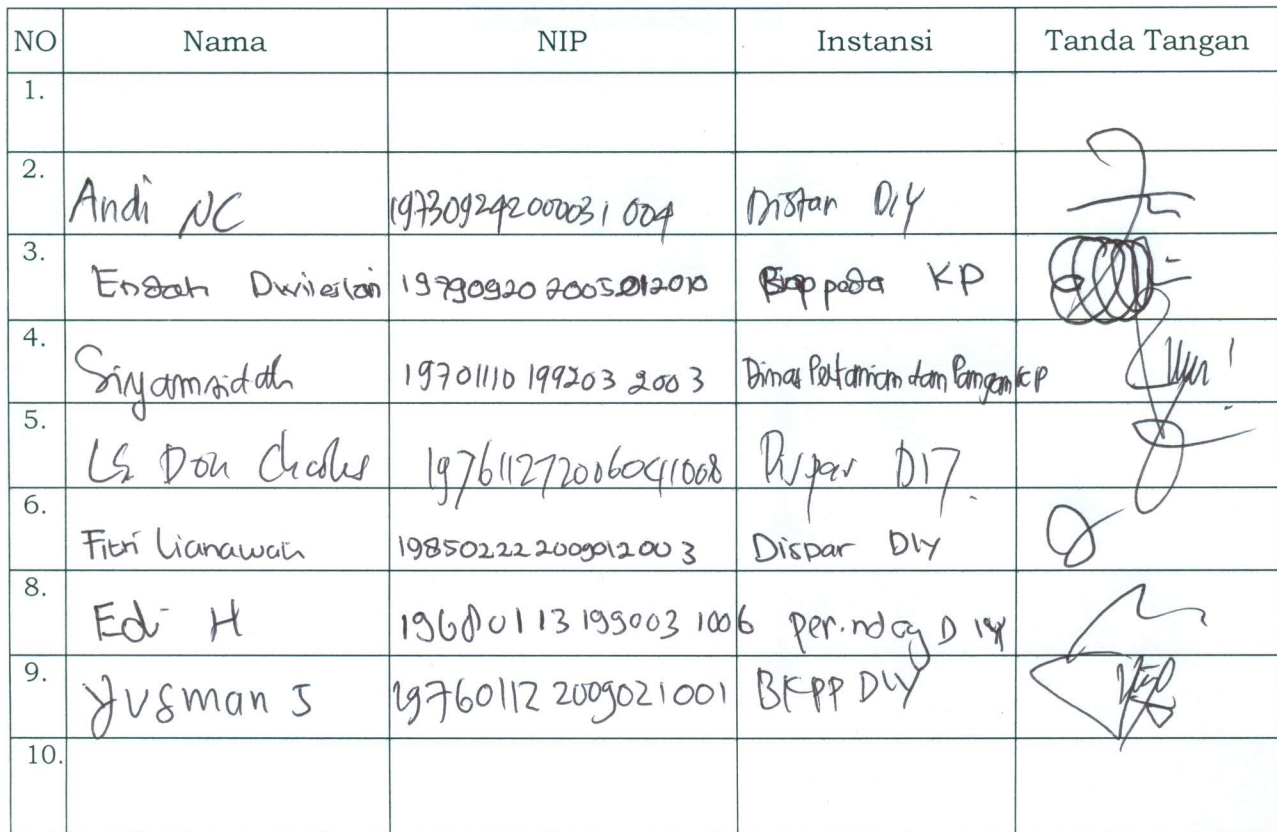 NO Nama NIP Instansi Tanda Tangan
1.
2. Andi NC 197309242000031004 Distan DIY
3. Endah Dwilestari 197909202005012010 Bappeda KP
4. Siyamsidah 19701110 199203 2003 Dinas Pertanian dan Pangan KP
5. LS Don Charles 197611272006041008 Dispar DIY
6. Fitri Lianawati 198502222009012003 Dispar DIY
8. Edi H 19680113 199003 1006 Perindag DIY
9. Yusman S 19760112 2009021001 BKPP DIY
10.